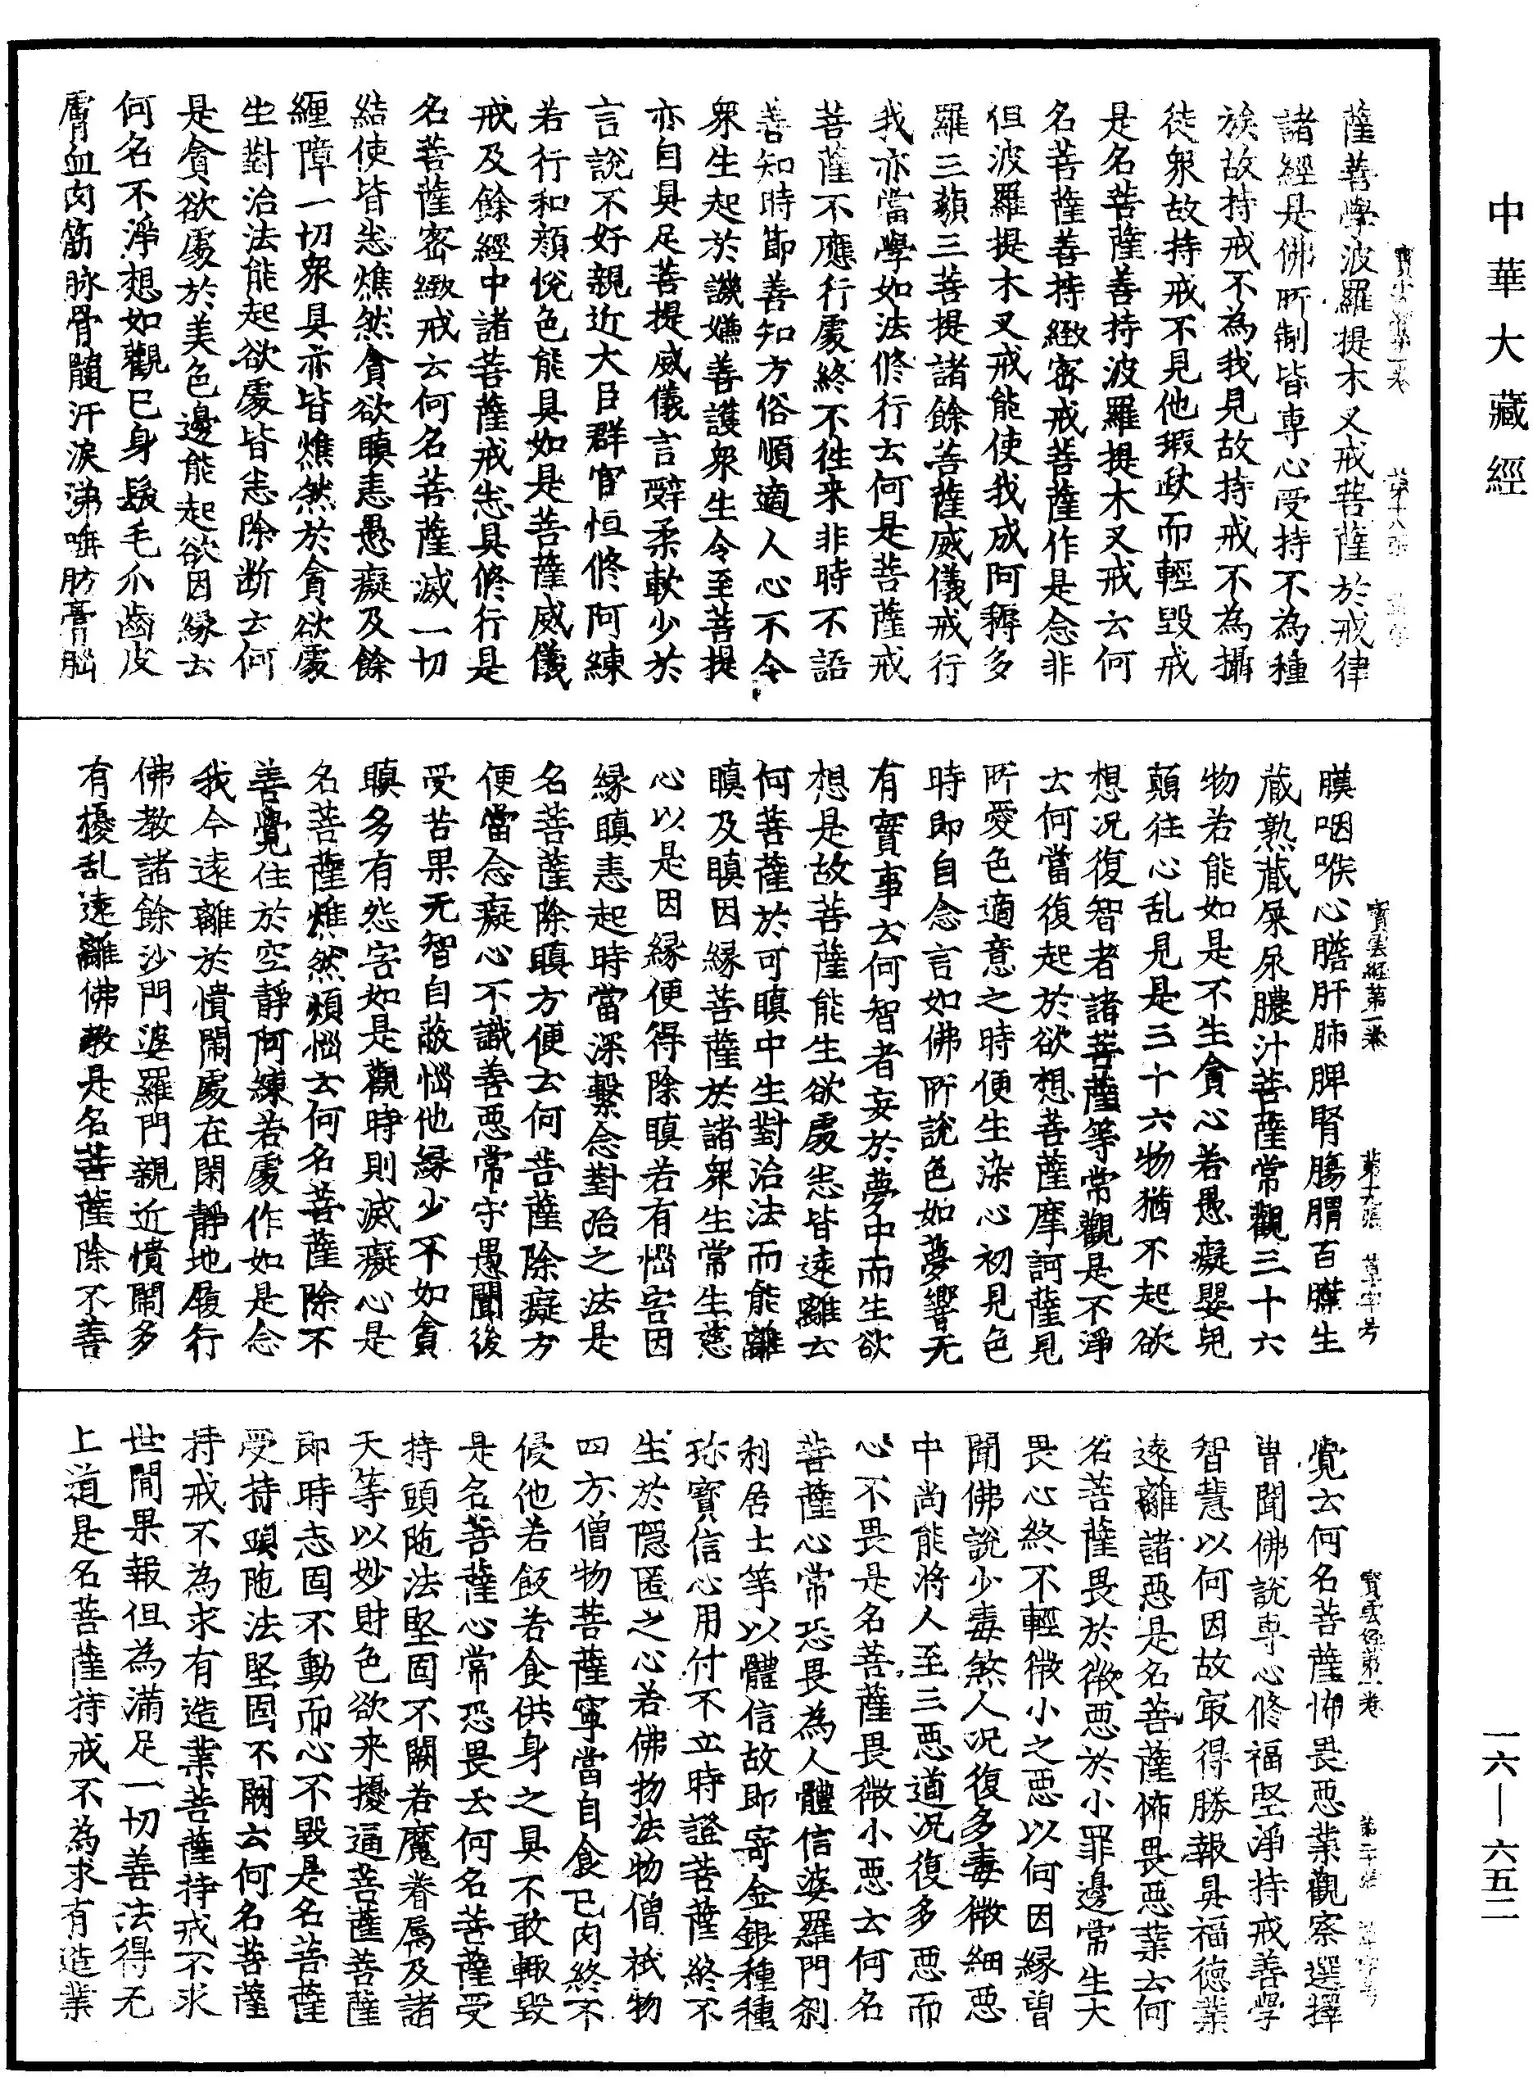 中華大藏經
薩善學波羅提木叉戒菩薩於戒律
諸經是佛所制皆專心受持不為種
族故持戒不為我見故持戒不為攝
徒衆故持戒不見他瑕玼而輕毀戒
是名菩薩善持波羅提木叉戒云何
名菩薩善持緻密戒菩薩作是念非
但波羅提木叉戒能使我成阿耨多
羅三藐三菩提諸餘菩薩威儀戒行
我亦當學如法修行云何是菩薩戒
菩薩不應行處終不往來非時不語
善知時節善知方俗順適人心不令
衆生起於譏嫌善護衆生令至菩提
亦自具足菩提威儀言辭柔軟少於
言說不好親近大臣群官恒修阿練
若行和顏悅色能具如是菩薩威儀
戒及餘經中諸菩薩戒悉具修行是
名菩薩密緻戒云何名菩薩滅一切
結使皆悉燋然貪欲瞋恚愚癡及餘
纏障一切衆具亦皆燋然於貪欲處
生對治法能起欲處皆悉除断云何
是貪欲處於美色邊能起欲因緣云
何名不淨想如觀已身髮毛爪齒皮
膚血肉筋脉骨髓汗淚涕唾肪膏腦
寶雲經第一卷
膜咽喉心膽肝肺脾腎腸胃百䐣生
藏熟藏屎尿膿汁菩薩常觀三十六
物若能如是不生貪心若愚癡嬰兒
顛狂心乱見是三十六物猶不起欲
想况復智者諸菩薩等常觀是不淨
云何當復起於欲想菩薩摩訶薩見
所愛色適意之時便生染心初見色
時即自念言如佛所說色如夢響无
有實事云何智者妄於夢中而生欲
想是故菩薩能生欲處悉皆遠離云
何菩薩於可瞋中生對治法而能離
瞋及瞋因緣菩薩於諸衆生常生慈
心以是因緣便得除瞋若有惱害因
緣瞋恚起時當深繫念對治之法是
名菩薩除瞋方便云何菩薩除癡方
便當念癡心不識善惡常守愚闇後
受苦果无智自蔽惱他緣少不如貪
瞋多有怨害如是觀時則滅癡心是
名菩薩燋然煩惱云何名菩薩除不
善覺住於空靜阿練若處作如是念
我今遠離於憒鬧處在閑靜地履行
佛教諸餘沙門婆羅門親近憒鬧多
有擾乱遠離佛教是名菩薩除不善
寶雲經第一卷
覺云何名菩薩怖畏惡業觀察選擇
曾聞佛說專心修福堅淨持戒善學
智慧以何因故㝡得勝報具福德業
遠離諸惡是名菩薩怖畏惡業云何
名菩薩畏於微惡於小罪邊常生大
畏心終不輕微小之惡以何因緣曾
聞佛說少毒煞人况復多毒微細惡
中尚能將人至三惡道况復多惡而
心不畏是名菩薩畏微小惡云何名
菩薩心常恐畏為人體信婆羅門刹
利居士等以體信故即寄金銀種種
珎寶信心用付不立時證菩薩終不
生於隱匿之心若佛物法物僧祇物
四方僧物菩薩寧當自食已肉終不
侵他若飯若食供身之具不敢輙毀
是名菩薩心常恐畏云何名菩薩受
持頭陁法堅固不闕若魔眷屬及諸
天等以妙財色欲来擾逼菩薩菩薩
即時志固不動而心不毀是名菩薩
受持頭陁法堅固不闕云何名菩薩
持戒不為求有造業菩薩持戒不求
世間果報但為滿足一切善法得无
上道是名菩薩持戒不為求有造業
一六—六五二